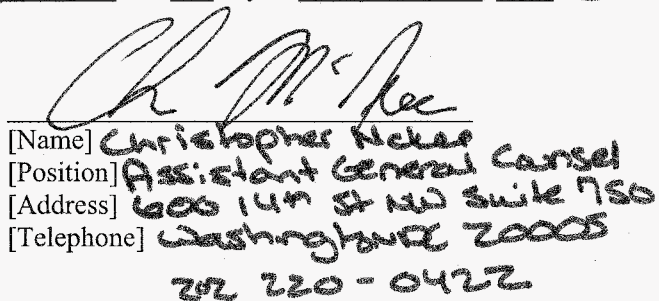 Ch McKee
[Name] Christopher McKee
[Position] Assistant General Counsel
[Address] 600 14th St NW Suite 750
[Telephone] Washington DC 20005
202 220-0422